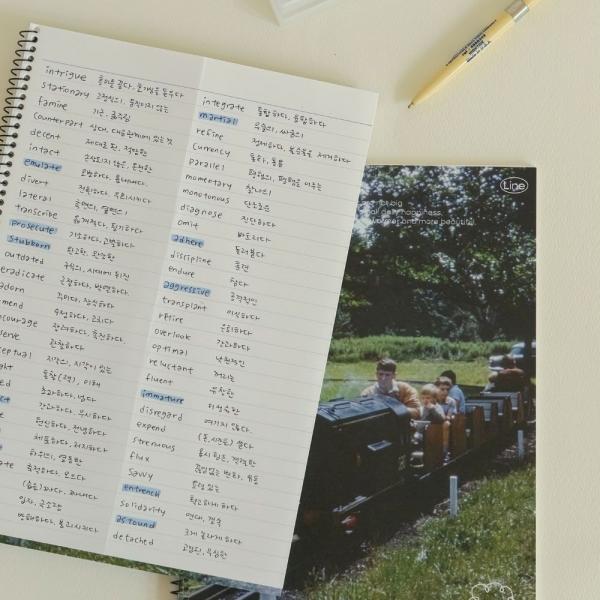 intrigue 흥미를 끌다, 호기심을 돋우다
stationary 고정적인, 움직이지 않는
famine 기근, 굶주림
counterpart 상대, 대응관계에 있는 것
decent 제대로 된, 적당한
intact 손상되지 않은, 온전한
emulate 모방하다, 흉내내다
divert 전환하다, 우회시키다
lateral 측면의, 옆면의
transcribe 옮겨적다, 필기하다
prosecute 기소하다, 고발하다
stubborn 완고한, 완강한
outdated 구식의, 시대에 뒤진
eradicate 근절하다, 박멸하다
adorn 꾸미다, 장식하다
mend 수선하다, 고치다
courage 장려하다, 촉진하다
serve 관찰하다
ceptual 지각의, 지각이 있는
ght 통찰(력), 이해
ed 초과하다, 넘다
ct 간과하다, 무시하다
헌신하다, 전념하다
체포하다, 저지하다
하위의, 열등한
ate 측정하다, 오르다
입자, 극소량
방해하다, 물리치다
integrate 통합하다, 융합하다
martial 무술의, 싸움의
refine 정제하다, 불순물을 제거하다
currency 통화, 통용
parallel 평행의, 평행을 이루는
momentary 찰나의
monotonous 단조로운
diagnose 진단하다
omit 빠뜨리다
adhere 들러붙다
discipline 훈련
endure 참다
aggressive 공격적인
transplant 이식하다
retire 은퇴하다
overlook 간과하다
optimal 낙천적인
reluctant 꺼리는
fluent 유창한
immature 미성숙한
disregard 여기지 않다
expend (돈, 시간을) 쓰다
strenuous 몹시 힘든, 격렬한
flux 끊임없는 변화, 유동
savvy 요령 있는
entrench 확고하게 하다
solidarity 연대, 결속
astound 크게 놀라게 하다
detached 고립된, 무심한
Line
big
daily happiness
and more beautiful.